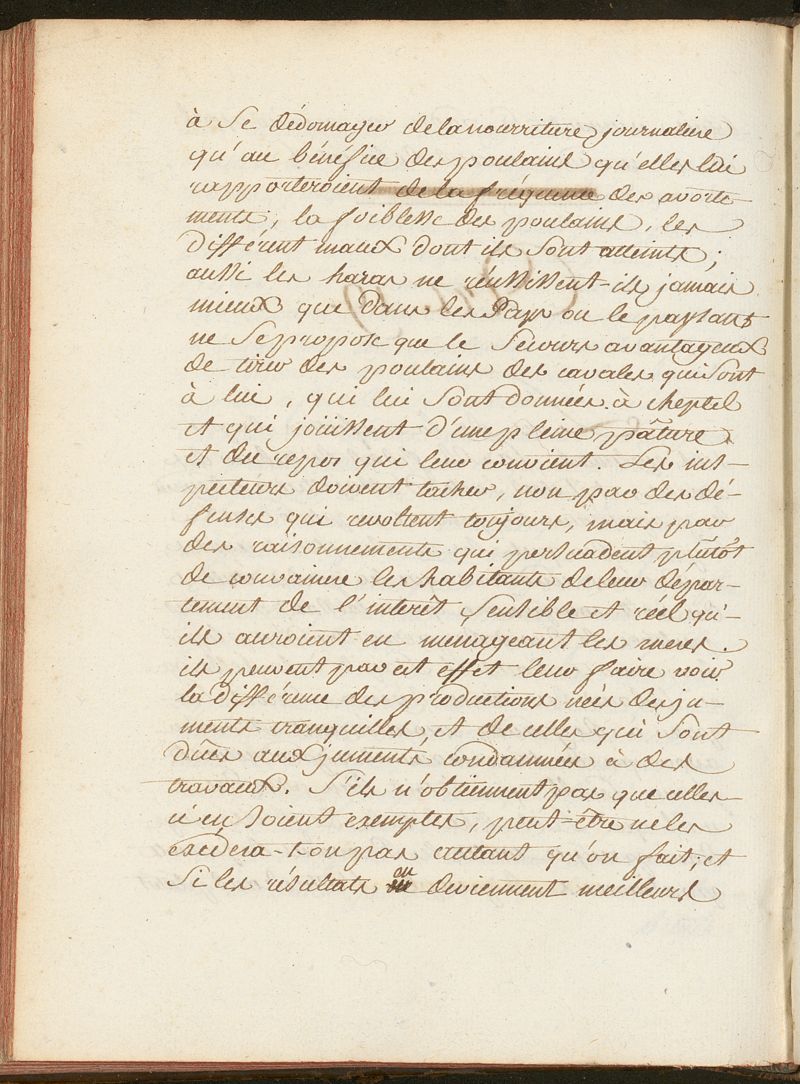 à se dédomager de la nourriture journaliere
qu'au bénéfice des poulains qu'elles lui
rapporteroient de la fréquence des avorte-
ments, la foiblesse des poulains, les
différent maux dont ils sont atteints;
aussi les haras ne réussissent-ils jamais
mieux que dans les Pays ou le paysans
ne se propose que le secours avantageux
de tirer des poulains des cavales qui sont
à lui, qui lui sont données à cheptel
et qui joüissent d'une pleine pâture
et du repos qui leur convient. Les ins-
pecteurs doivent tacher, non par des dé-
fenses qui revoltent toujours, mais par
des raisonnements qui persuadent plûtôt
de convaincre les habitants de leur dépar-
tement de l'interêt sensible et réel qu'-
ils auroient en menageant les meres.
ils peuvent par cet effet leur faire voir
la différence des productions neés des ju-
ments tranquilles, et de celles qui sont
dües aux juments condamnées à des
travaux. S'ils n'obtiennent pas que celles-
ci en soient exemptes, peut-être ne les
excédera-t-on pas autant qu'on fait, et
si les résultats en deviennent meilleurs